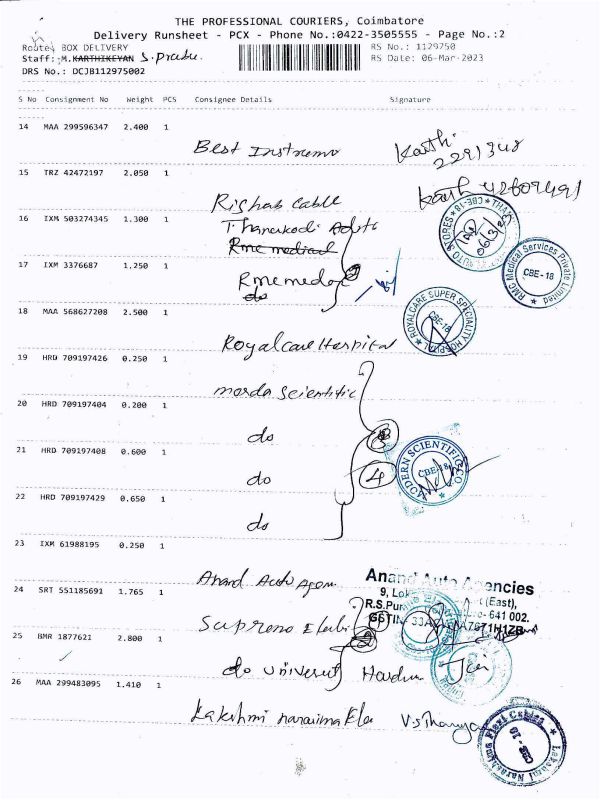 THE PROFESSIONAL COURIERS, Coimbatore
Delivery Runsheet - PCX - Phone No.:0422-3505555 - Page No.:2
Route: BOX DELIVERY
RS No.: 1129750
Staff: M.KARTHIKEYAN S. prabu.
RS Date: 06-Mar-2023
DRS No.: DCJB112975002
S No Consignment No Weight PCS Consignee Details Signature
14 MAA 299596347 2.400 1
Best Instrumo Karthi
2291348
15 TRZ 42472197 2.050 1
Rishab Cable
16 IXM 503274345 1.300 1
Thanukodi Auto
Rmc medical
17 IXM 3376687 1.250 1
Rmc medical
do
18 MAA 568627208 2.500 1
Royalcare Hospital
19 HRD 709197426 0.250 1
morda Scientific
20 HRD 709197404 0.200 1
do
21 HRD 709197408 0.600 1
do 4
22 HRD 709197429 0.650 1
do
23 IXM 61988195 0.250 1
Anand Auto Agen
24 SRT 551185691 1.765 1
Supreno Elebi
25 BMR 1877621 2.800 1
do
26 MAA 299483095 1.410 1
Lakshmi narasima Ele V.S Thanya
AUTO STORES CBE-18
06/3/23
RMC Medical Services Private Limited
CBE-18
ROYALCARE SUPER SPECIALITY HOSPITAL
CBE-18
MODERN SCIENTIFIC CO
CBE-18
Anand Auto Agencies
(East),
641 002.
GSTIN: 33A
Lakshmi Narasima Flexi Cables
CBE - 18